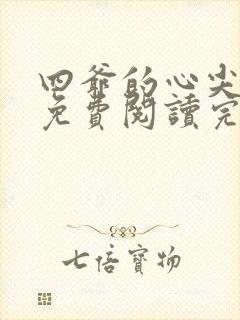 四爺的心尖
免費閱讀完
七倍寶物